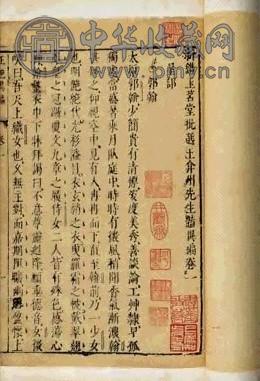 中华收藏网
新鐫玉茗堂批選王弇州先生豔異編卷一
星部
郭翰
太原郭翰少簡貴有清標姿度美秀善談論工艸隸早孤
獨處當盛暑乘月臥庭中時時有微風稍聞香氣漸濃翰
甚怪之仰視空中見有人冉冉而下直至翰前乃一少女
也明艷絕代光彩溢目衣玄綃之衣曳霜羅之帔戴翠翹
鳳凰之冠躡瓊文九章之履侍女二人皆有殊色感蕩心
神翰整衣巾下牀拜謁曰不意尊靈迥降願垂德音女微
笑曰吾天上織女也久無主對而嘉期阻曠幽態盈懷上